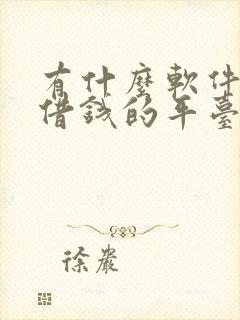 有什麼軟件
借錢的平臺
徐巖